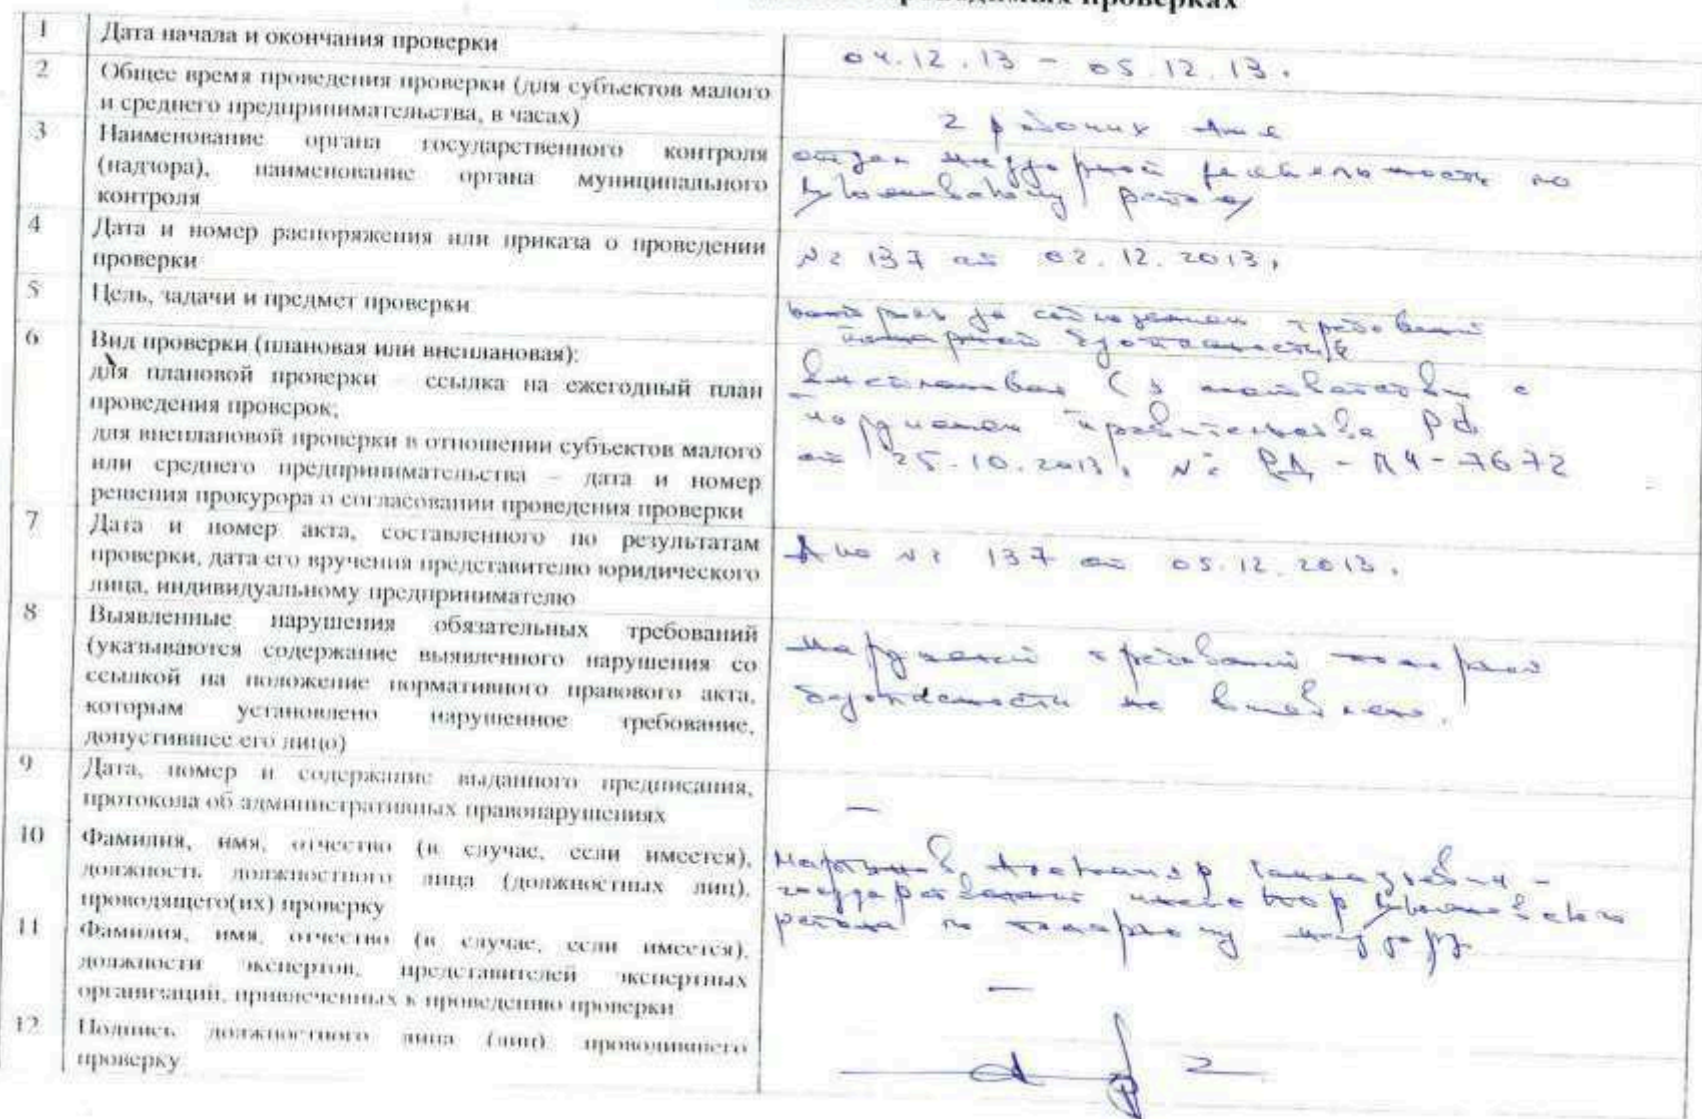 проверках
1 Дата начала и окончания проверки
04.12.13 - 05.12.13.
2 Общее время проведения проверки (для субъектов малого
и среднего предпринимательства, в часах)
2 рабочих дня
3 Наименование органа государственного контроля
(надзора), наименование органа муниципального
контроля
отдел надзорной деятельности по
району
4 Дата и номер распоряжения или приказа о проведении
проверки
№ 137 от 02.12.2013.
5 Цель, задачи и предмет проверки
контроль за соблюдением требований
пожарной безопасности
6 Вид проверки (плановая или внеплановая):
для плановой проверки ссылка на ежегодный план
проведения проверок;
для внеплановой проверки в отношении субъектов малого
или среднего предпринимательства – дата и номер
решения прокурора о согласовании проведения проверки
внеплановая (в соответствии с
правительства РФ
от 25.10.2013. № РД-П4-7672
7 Дата и номер акта, составленного по результатам
проверки, дата его вручения представителю юридического
лица, индивидуальному предпринимателю
Акт № 137 от 05.12.2013.
8 Выявленные нарушения обязательных требований
(указываются содержание выявленного нарушения со
ссылкой на положение нормативного правового акта,
которым установлено нарушенное требование,
допустившее его лицо)
нарушений требований пожарной
безопасности не выявлено.
9 Дата, номер и содержание выданного предписания,
протокола об административных правонарушениях
–
10 Фамилия, имя, отчество (в случае, если имеется),
должность должностного лица (должностных лиц),
проводящего(их) проверку
Мартынов Александр -
государственный инспектор
района по пожарному надзору
11 Фамилия, имя, отчество (в случае, если имеется),
должности экспертов, представителей экспертных
организаций, привлеченных к проведению проверки
–
12 Подпись должностного лица (лиц) проводившего
проверку